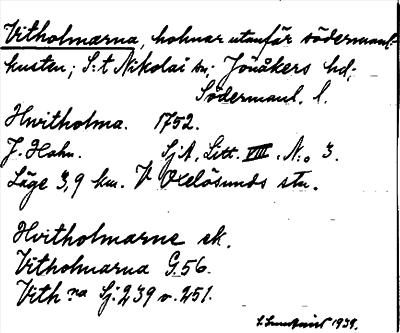 Vitholmarna, holmar utanför södermanl.-
kusten; S:t Nikolai sn; Jönåkers hd;
Södermanl. l.
Hwitholma. 1752.
J. Hahn. SjA, Litt. VIII. N:o 3.
Läge 3,9 km. V Oxelösunds stn.
Hvitholmarne ek.
Vitholmarna G.56.
Vith:na Sj. 239 o. 251.
1939.